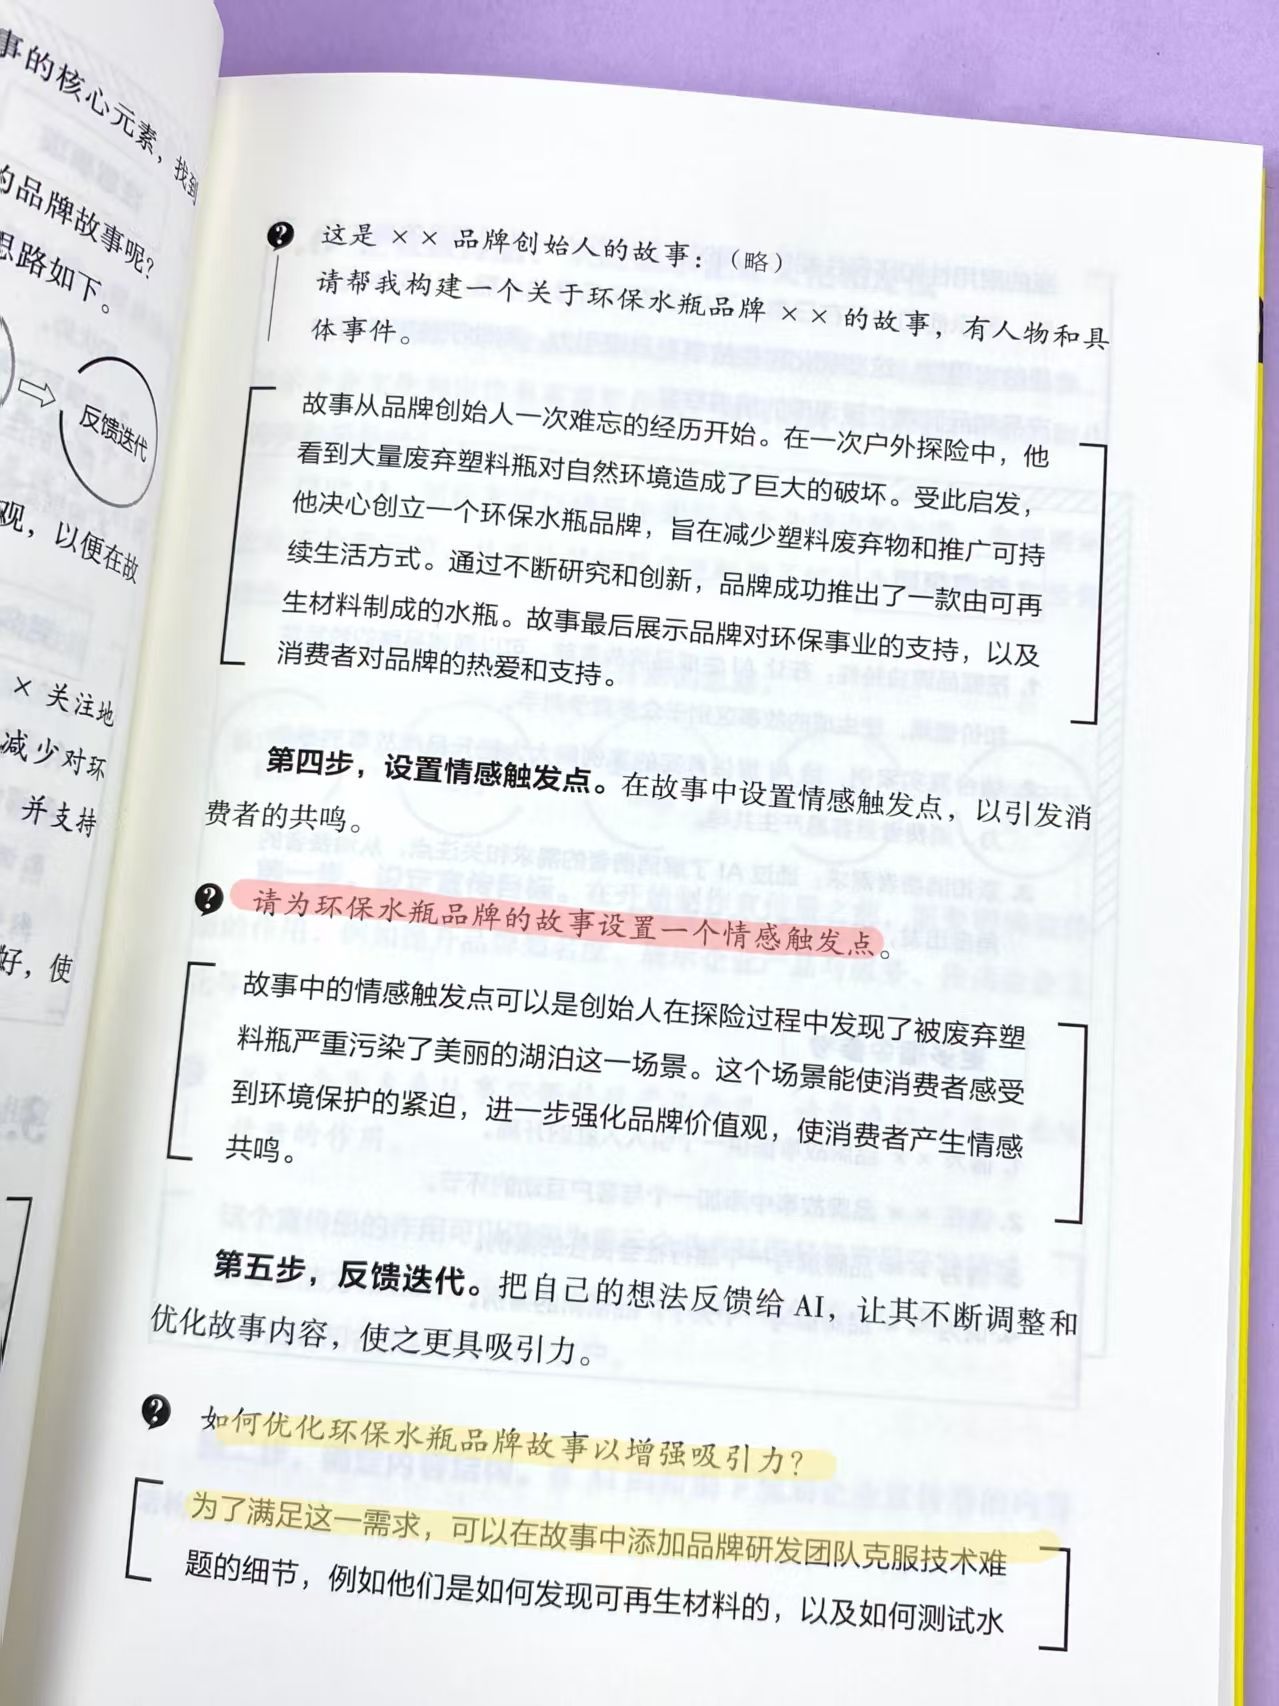 事的核心元素，找到
的品牌故事呢？
思路如下。
反馈迭代
观，以便在故
×关注地
减少对环
并支持
好，使
这是××品牌创始人的故事：（略）
请帮我构建一个关于环保水瓶品牌××的故事，有人物和具
体事件。
故事从品牌创始人一次难忘的经历开始。在一次户外探险中，他
看到大量废弃塑料瓶对自然环境造成了巨大的破坏。受此启发，
他决心创立一个环保水瓶品牌，旨在减少塑料废弃物和推广可持
续生活方式。通过不断研究和创新，品牌成功推出了一款由可再
生材料制成的水瓶。故事最后展示品牌对环保事业的支持，以及
消费者对品牌的热爱和支持。
第四步，设置情感触发点。在故事中设置情感触发点，以引发消
费者的共鸣。
请为环保水瓶品牌的故事设置一个情感触发点。
故事中的情感触发点可以是创始人在探险过程中发现了被废弃塑
料瓶严重污染了美丽的湖泊这一场景。这个场景能使消费者感受
到环境保护的紧迫，进一步强化品牌价值观，使消费者产生情感
共鸣。
第五步，反馈迭代。把自己的想法反馈给 AI，让其不断调整和
优化故事内容，使之更具吸引力。
如何优化环保水瓶品牌故事以增强吸引力？
为了满足这一需求，可以在故事中添加品牌研发团队克服技术难
题的细节，例如他们是如何发现可再生材料的，以及如何测试水